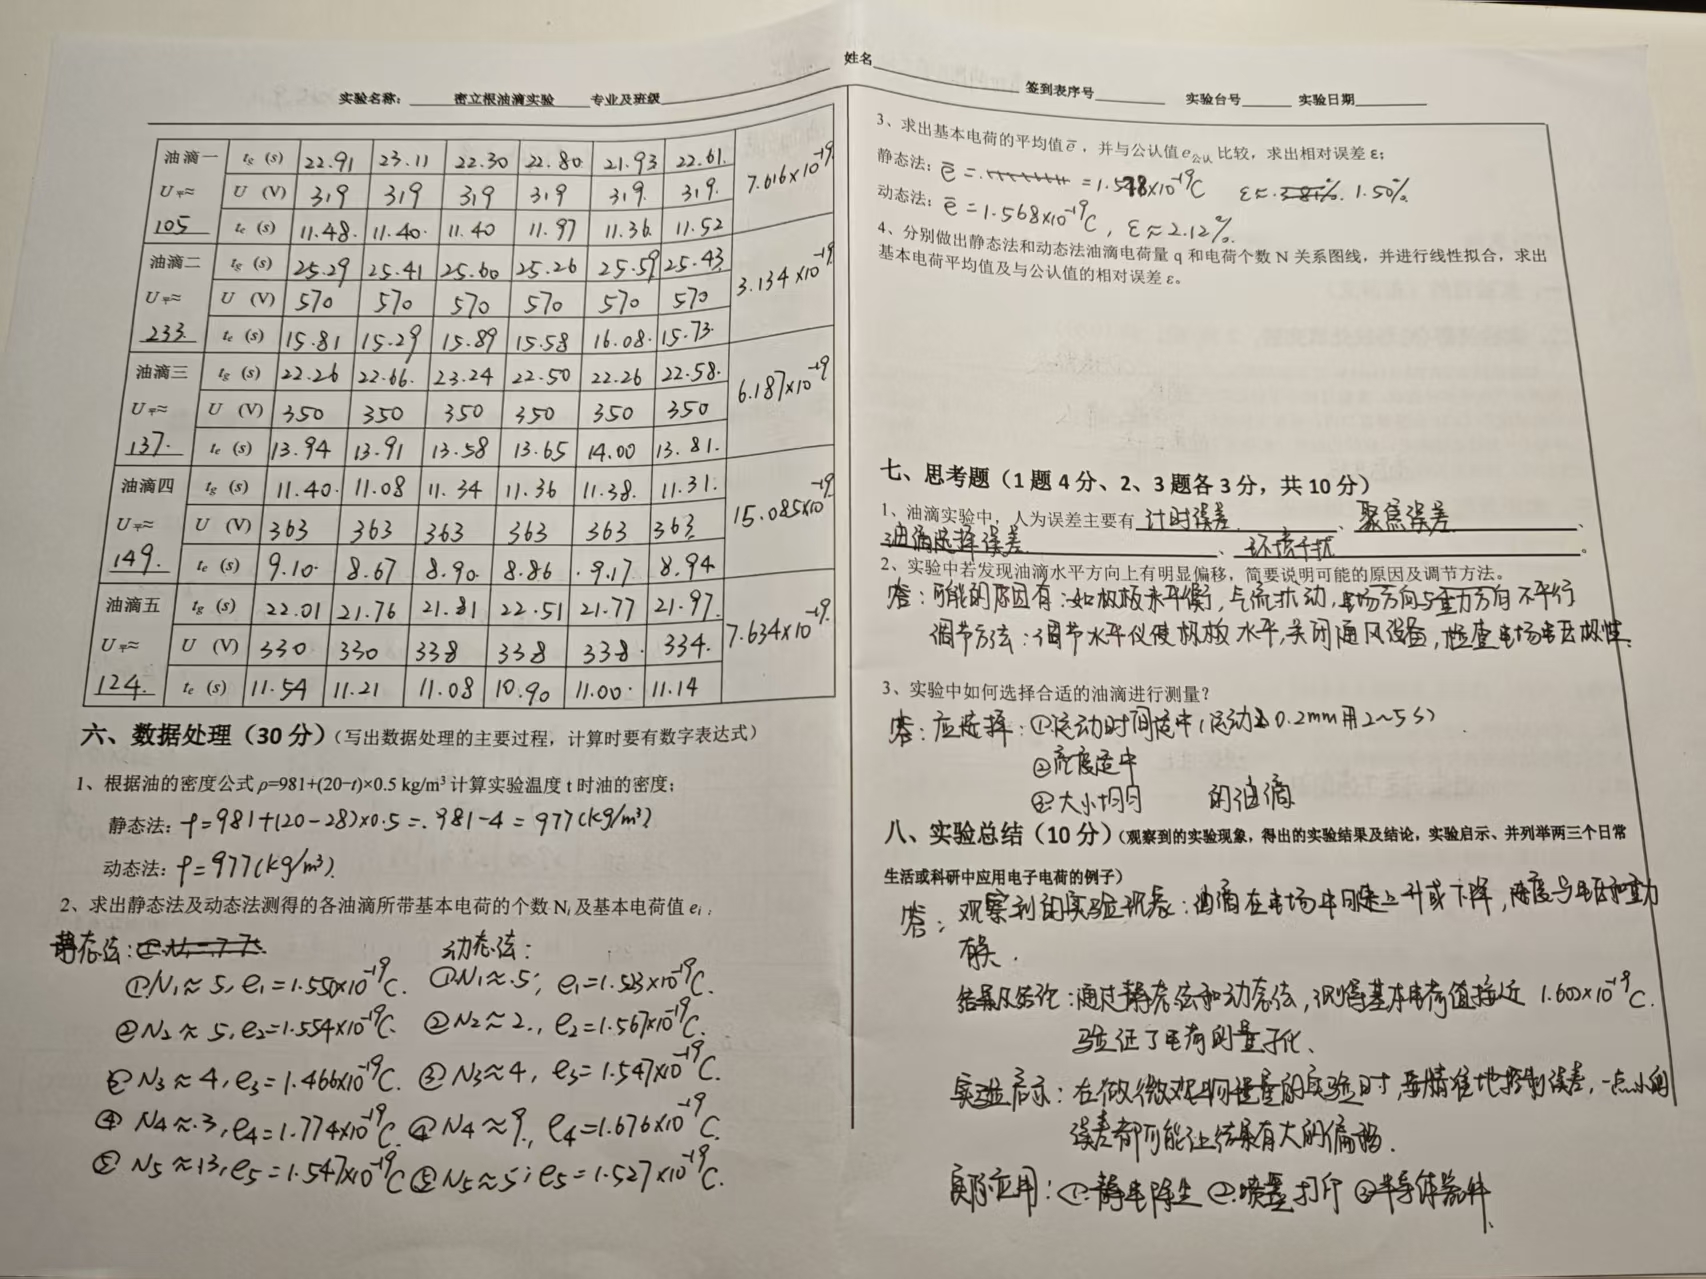 姓名
实验名称：密立根油滴实验 专业及班级
签到表序号 实验台号 实验日期
油滴一 tg (s) 22.91 23.11 22.30 22.80 21.93 22.61. 7.616×10⁻¹⁹
U平≈ U (V) 319 319 319 319 319. 319.
105 te (s) 11.48. 11.40. 11.40 11.97 11.36 11.52
油滴二 tg (s) 25.29 25.41 25.60 25.26 25.59 25.43. 3.134×10⁻¹⁹
U平≈ U (V) 570 570 570 570 570 570
233. te (s) 15.81 15.29 15.89 15.58 16.08. 15.73
油滴三 tg (s) 22.26 22.66. 23.24 22.50 22.26 22.58. 6.187×10⁻¹⁹
U平≈ U (V) 350 350 350 350 350 350
137. te (s) 13.94 13.91 13.58 13.65 14.00 13.81.
油滴四 tg (s) 11.40. 11.08 11.34 11.36 11.38. 11.31. 15.085×10⁻¹⁹
U平≈ U (V) 363 363 363 363 363 363
149. te (s) 9.10. 8.67 8.90. 8.86 9.17 8.94
油滴五 tg (s) 22.01 21.76 21.81 22.51 21.77 21.97. 7.634×10⁻¹⁹
U平≈ U (V) 330 330 338 338 338. 334.
124. te (s) 11.54 11.21 11.08 10.90 11.00. 11.14
六、数据处理（30 分）（写出数据处理的主要过程，计算时要有数字表达式）
1、根据油的密度公式 ρ=981+(20−t)×0.5 kg/m³ 计算实验温度 t 时油的密度；
静态法：ρ=981+(20-28)×0.5=981-4=977(kg/m³)
动态法：ρ=977(kg/m³).
2、求出静态法及动态法测得的各油滴所带基本电荷的个数 Ni 及基本电荷值 ei；
静态法： 动态法：
①N₁≈5, e₁=1.550×10⁻¹⁹C. ①N₁≈5; e₁=1.523×10⁻¹⁹C.
②N₂≈5, e₂=1.554×10⁻¹⁹C ②N₂≈2., e₂=1.567×10⁻¹⁹C.
③N₃≈4, e₃=1.466×10⁻¹⁹C. ③N₃≈4, e₃=1.547×10⁻¹⁹C.
④N₄≈3, e₄=1.774×10⁻¹⁹C. ④N₄≈9., e₄=1.676×10⁻¹⁹C.
⑤N₅≈13, e₅=1.547×10⁻¹⁹C ⑤N₅≈5; e₅=1.527×10⁻¹⁹C.
3、求出基本电荷的平均值 e̅，并与公认值 e公认 比较，求出相对误差 ε；
静态法：e̅= =1.578×10⁻¹⁹C ε≈ 1.50%.
动态法：e̅=1.568×10⁻¹⁹C, ε≈2.12%.
4、分别做出静态法和动态法油滴电荷量 q 和电荷个数 N 关系图线，并进行线性拟合，求出
基本电荷平均值及与公认值的相对误差 ε。
七、思考题（1 题 4 分、2、3 题各 3 分，共 10 分）
1、油滴实验中，人为误差主要有 计时误差 、聚焦误差 、
油滴选择误差 、环境干扰 。
2、实验中若发现油滴水平方向上有明显偏移，简要说明可能的原因及调节方法。
答：可能的原因有：如极板未平衡，气流扰动，电场方向与重力方向不平行
调节方法：调节水平仪使极板水平，关闭通风设备，检查电场电压极性.
3、实验中如何选择合适的油滴进行测量？
答：应选择：①运动时间适中(运动 0.2mm用2~5s)
②亮度适中
③大小均匀 的油滴
八、实验总结（10 分）（观察到的实验现象，得出的实验结果及结论，实验启示、并列举两三个日常
生活或科研中应用电子电荷的例子）
答：观察到的实验现象：油滴在电场中可以上升或下降，速度与电压和重力
有关.
结果及结论：通过静态法和动态法，测得基本电荷值接近 1.602×10⁻¹⁹C.
验证了电荷的量子化、
实验启示：在做微观物理量的实验时，要精准地控制误差，一点小的
误差都可能让结果有大的偏移.
实际应用：①静电除尘 ②喷墨打印 ③半导体器件、